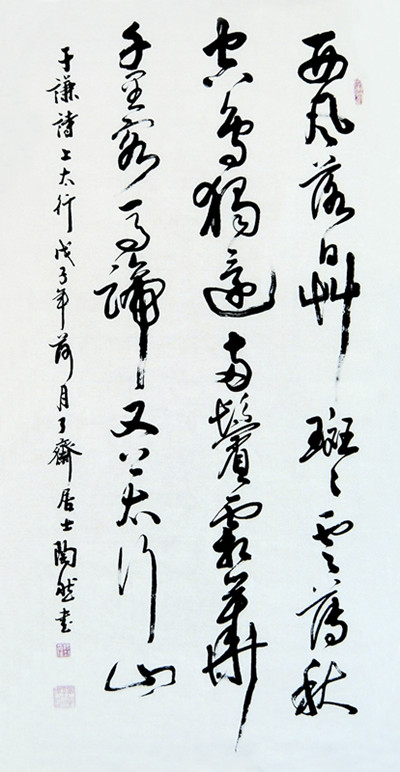 西風落日艸斑々雲薄秋
空鳥獨還兩鬢霜華
千里客馬蹄又上太行山
于謙詩上太行戊子年荷月了齋居士陶然書